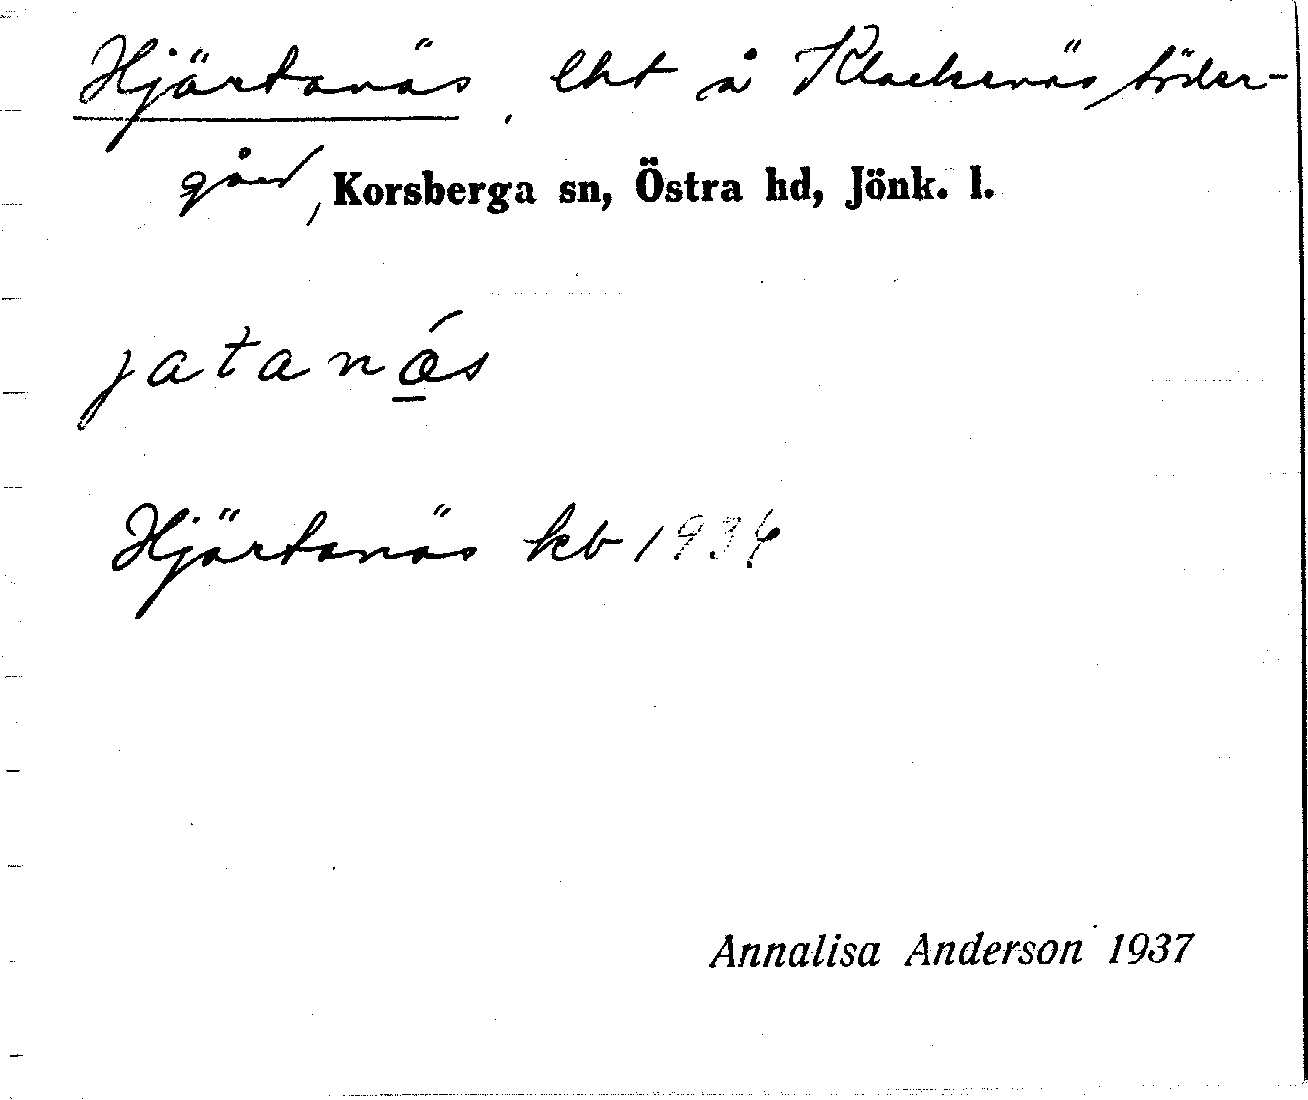 Hjärtanäs, lht å Klackenäs söder-
gård, Korsberga sn, Östra hd, Jönk. l.
jatanás
Hjärtanäs kb 1934
Annalisa Anderson 1937